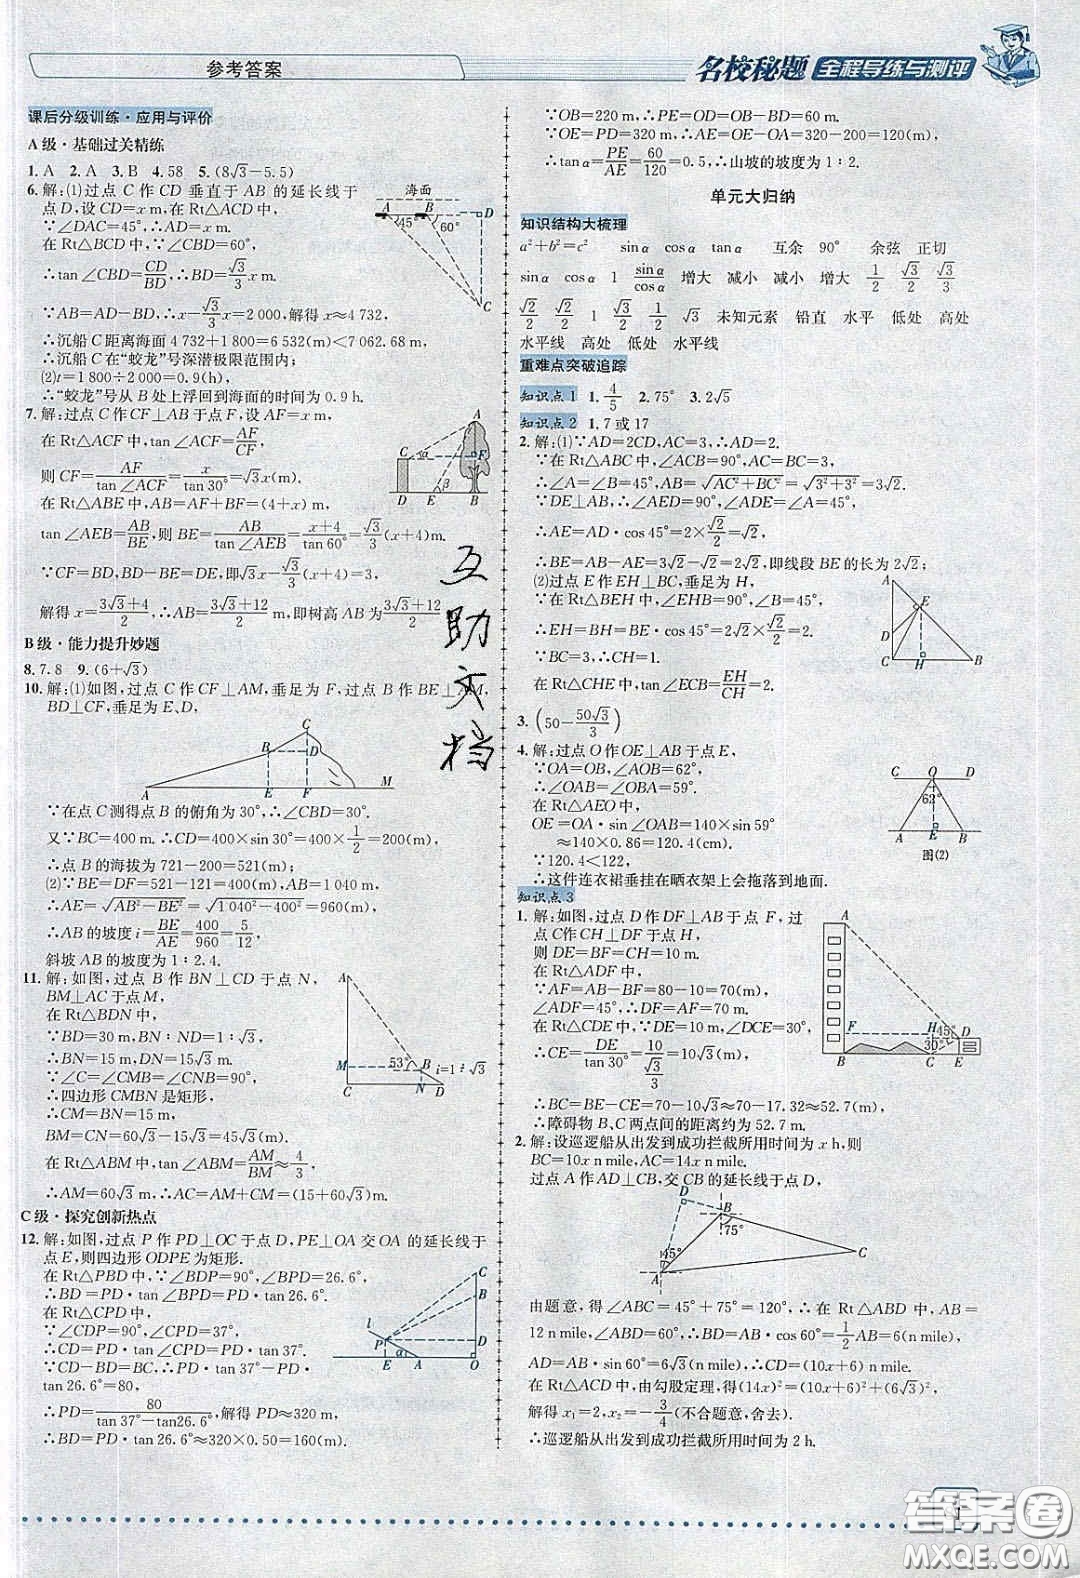 参考答案
名校秘题 全程导练与测评
课后分级训练·应用与评价
A级·基础过关精练
1. A 2. A 3. B 4. 58 5. (8√3-5.5)
6. 解:(1)过点C作CD垂直于AB的延长线于
点D,设CD=x m,在Rt△ACD中,
∵∠DAC=45°,∴AD=x m.
在Rt△BCD中,∵∠CBD=60°,
∴tan∠CBD=CD/BD,∴BD=√3/3 x m.
∵AB=AD-BD,∴x-√3/3 x=2 000,解得x≈4 732,
∴沉船C距离海面4 732+1 800=6 532(m)<7 062.68 m,
∴沉船C在“蛟龙”号深潜极限范围内;
(2)t=1 800÷2 000=0.9(h),
∴“蛟龙”号从B处上浮回到海面的时间为0.9 h.
海面
A B D
45° 60°
C
7. 解:过点C作CF⊥AB于点F,设AF=x m,
在Rt△ACF中,tan∠ACF=AF/CF,
则CF=AF/tan∠ACF=x/tan30°=√3x(m).
在Rt△ABE中,AB=AF+BF=(4+x)m,
tan∠AEB=AB/BE,则BE=AB/tan∠AEB=x+4/tan60°=√3/3(x+4)m.
∵CF=BD,BD-BE=DE,即√3x-√3/3(x+4)=3,
解得x=3√3+4/2,∴AB=3√3+12/2,即树高AB为3√3+12/2
A
C α F
β
D E B
B级·能力提升妙题
8. 7.8 9. (6+√3)
10. 解:(1)如图,过点C作CF⊥AM,垂足为F,过点B作BE⊥AM,
BD⊥CF,垂足为E、D,
C
B D
A E F M
∵在点C测得点B的俯角为30°,∴∠CBD=30°.
又∵BC=400 m.∴CD=400×sin30°=400×1/2=200(m)
∴点B的海拔为721-200=521(m);
(2)∵BE=DF=521-121=400 m,∵AB=1 040 m,
∴AE=√AB²-BE²=√1 040²-400²=960(m),
∴AB的坡度i=BE/AE=400/960=5/12,
斜坡AB的坡度为1:2.4.
11. 解:如图,过点B作BN⊥CD于点N,
BM⊥AC于点M,
在Rt△BDN中,
∵BD=30 m,BN:ND=1:√3,
∴BN=15 m,DN=15√3 m.
∵∠C=∠CMB=∠CNB=90°,
∴四边形CMBN是矩形,
∴CM=BN=15 m,
BM=CN=60√3-15√3=45√3(m).
在Rt△ABM中,tan∠ABM=AM/BM≈4/3,
∴AM=60√3 m,∴AC=AM+CM=(15+60√3)m.
A
M 53° B i=1:√3
C N D
C级·探究创新热点
12. 解:如图,过点P作PD⊥OC于点D,PE⊥OA交OA的延长线于
点E,则四边形ODPE为矩形.
在Rt△PBD中,∵∠BDP=90°,∠BPD=26.6°,
∴BD=PD·tan∠BPD=PD·tan26.6°.
在Rt△CPD中,
∵∠CDP=90°,∠CPD=37°,
∴CD=PD·tan∠CPD=PD·tan37°.
∵CD-BD=BC,∴PD·tan37°-PD·
tan26.6°=80,
∴PD=80/tan37°-tan26.6°,解得PD≈320 m,
∴BD=PD·tan26.6°≈320×0.50=160(m).
C
B
l
P D
E α A O
∵OB=220 m,∴PE=OD=OB-BD=60 m.
∵OE=PD=320 m,∴AE=OE-OA=320-200=120(m),
∴tanα=PE/AE=60/120=0.5,∴山坡的坡度为1:2.
单元大归纳
知识结构大梳理
a²+b²=c² sinα cosα tanα 互余 90° 余弦 正切
sinα cosα 1 sinα/cosα 增大 减小 减小 增大 1/2 √3/2 √3/3
√2/2 √2/2 1 √3/2 1/2 √3 未知元素 铅直 水平 低处 高处
水平线 高处 低处 水平线
重难点突破追踪
知识点1 1. 4/5 2. 75° 3. 2√5
知识点2 1. 7或17
2. 解:(1)∵AD=2CD,AC=3,∴AD=2.
∵在Rt△ABC中,∠ACB=90°,AC=BC=3,
∴∠A=∠B=45°,AB=√AC²+BC²=√3²+3²=3√2.
∵DE⊥AB,∴∠AED=90°,∠ADE=∠A=45°,
∴AE=AD·cos45°=2×√2/2=√2,
∴BE=AB-AE=3√2-√2=2√2,即线段BE的长为2√2;
(2)过点E作EH⊥BC,垂足为H,
∵在Rt△BEH中,∠EHB=90°,∠B=45°,
∴EH=BH=BE·cos45°=2√2×√2/2=2.
∵BC=3,∴CH=1.
在Rt△CHE中,tan∠ECB=EH/CH=2.
A
D E
C H B
3. (50-50√3/3)
4. 解:过点O作OE⊥AB于点E,
∵OA=OB,∠AOB=62°,
∴∠OAB=∠OBA=59°.
在Rt△AEO中,
OE=OA·sin∠OAB=140×sin59°
≈140×0.86=120.4(cm).
∵120.4<122,
∴这件连衣裙垂挂在晒衣架上会拖落到地面.
C O D
62°
A E B
图(2)
知识点3
1. 解:如图,过点D作DF⊥AB于点F,过
点C作CH⊥DF于点H,
则DE=BF=CH=10 m,
在Rt△ADF中,
∵AF=AB-BF=80-10=70(m),
∠ADF=45°,∴DF=AF=70 m.
在Rt△CDE中,∵DE=10 m,∠DCE=30°,
∴CE=DE/tan30°=10/√3/3=10√3(m),
∴BC=BE-CE=70-10√3≈70-17.32≈52.7(m).
∴障碍物B、C两点间的距离约为52.7 m.
A
F H 45° D
30°
B C E
2. 解:设巡逻船从出发到成功拦截所用时间为x h,则
BC=10x n mile,AC=14x n mile.
过点A作AD⊥CB,交CB的延长线于点D,
D B
75°
45° C
A
由题意,得∠ABC=45°+75°=120°,∴在Rt△ABD中,AB=
12 n mile,∠ABD=60°,∴BD=AB·cos60°=1/2AB=6(n mile),
AD=AB·sin60°=6√3(n mile),∴CD=(10x+6)n mile.
在Rt△ACD中,由勾股定理,得(14x)²=(10x+6)²+(6√3)²,
解得x₁=2,x₂=-3/4(不合题意,舍去).
∴巡逻船从出发到成功拦截所用时间为2 h.
互助文档
答案圈
MXQE.COM